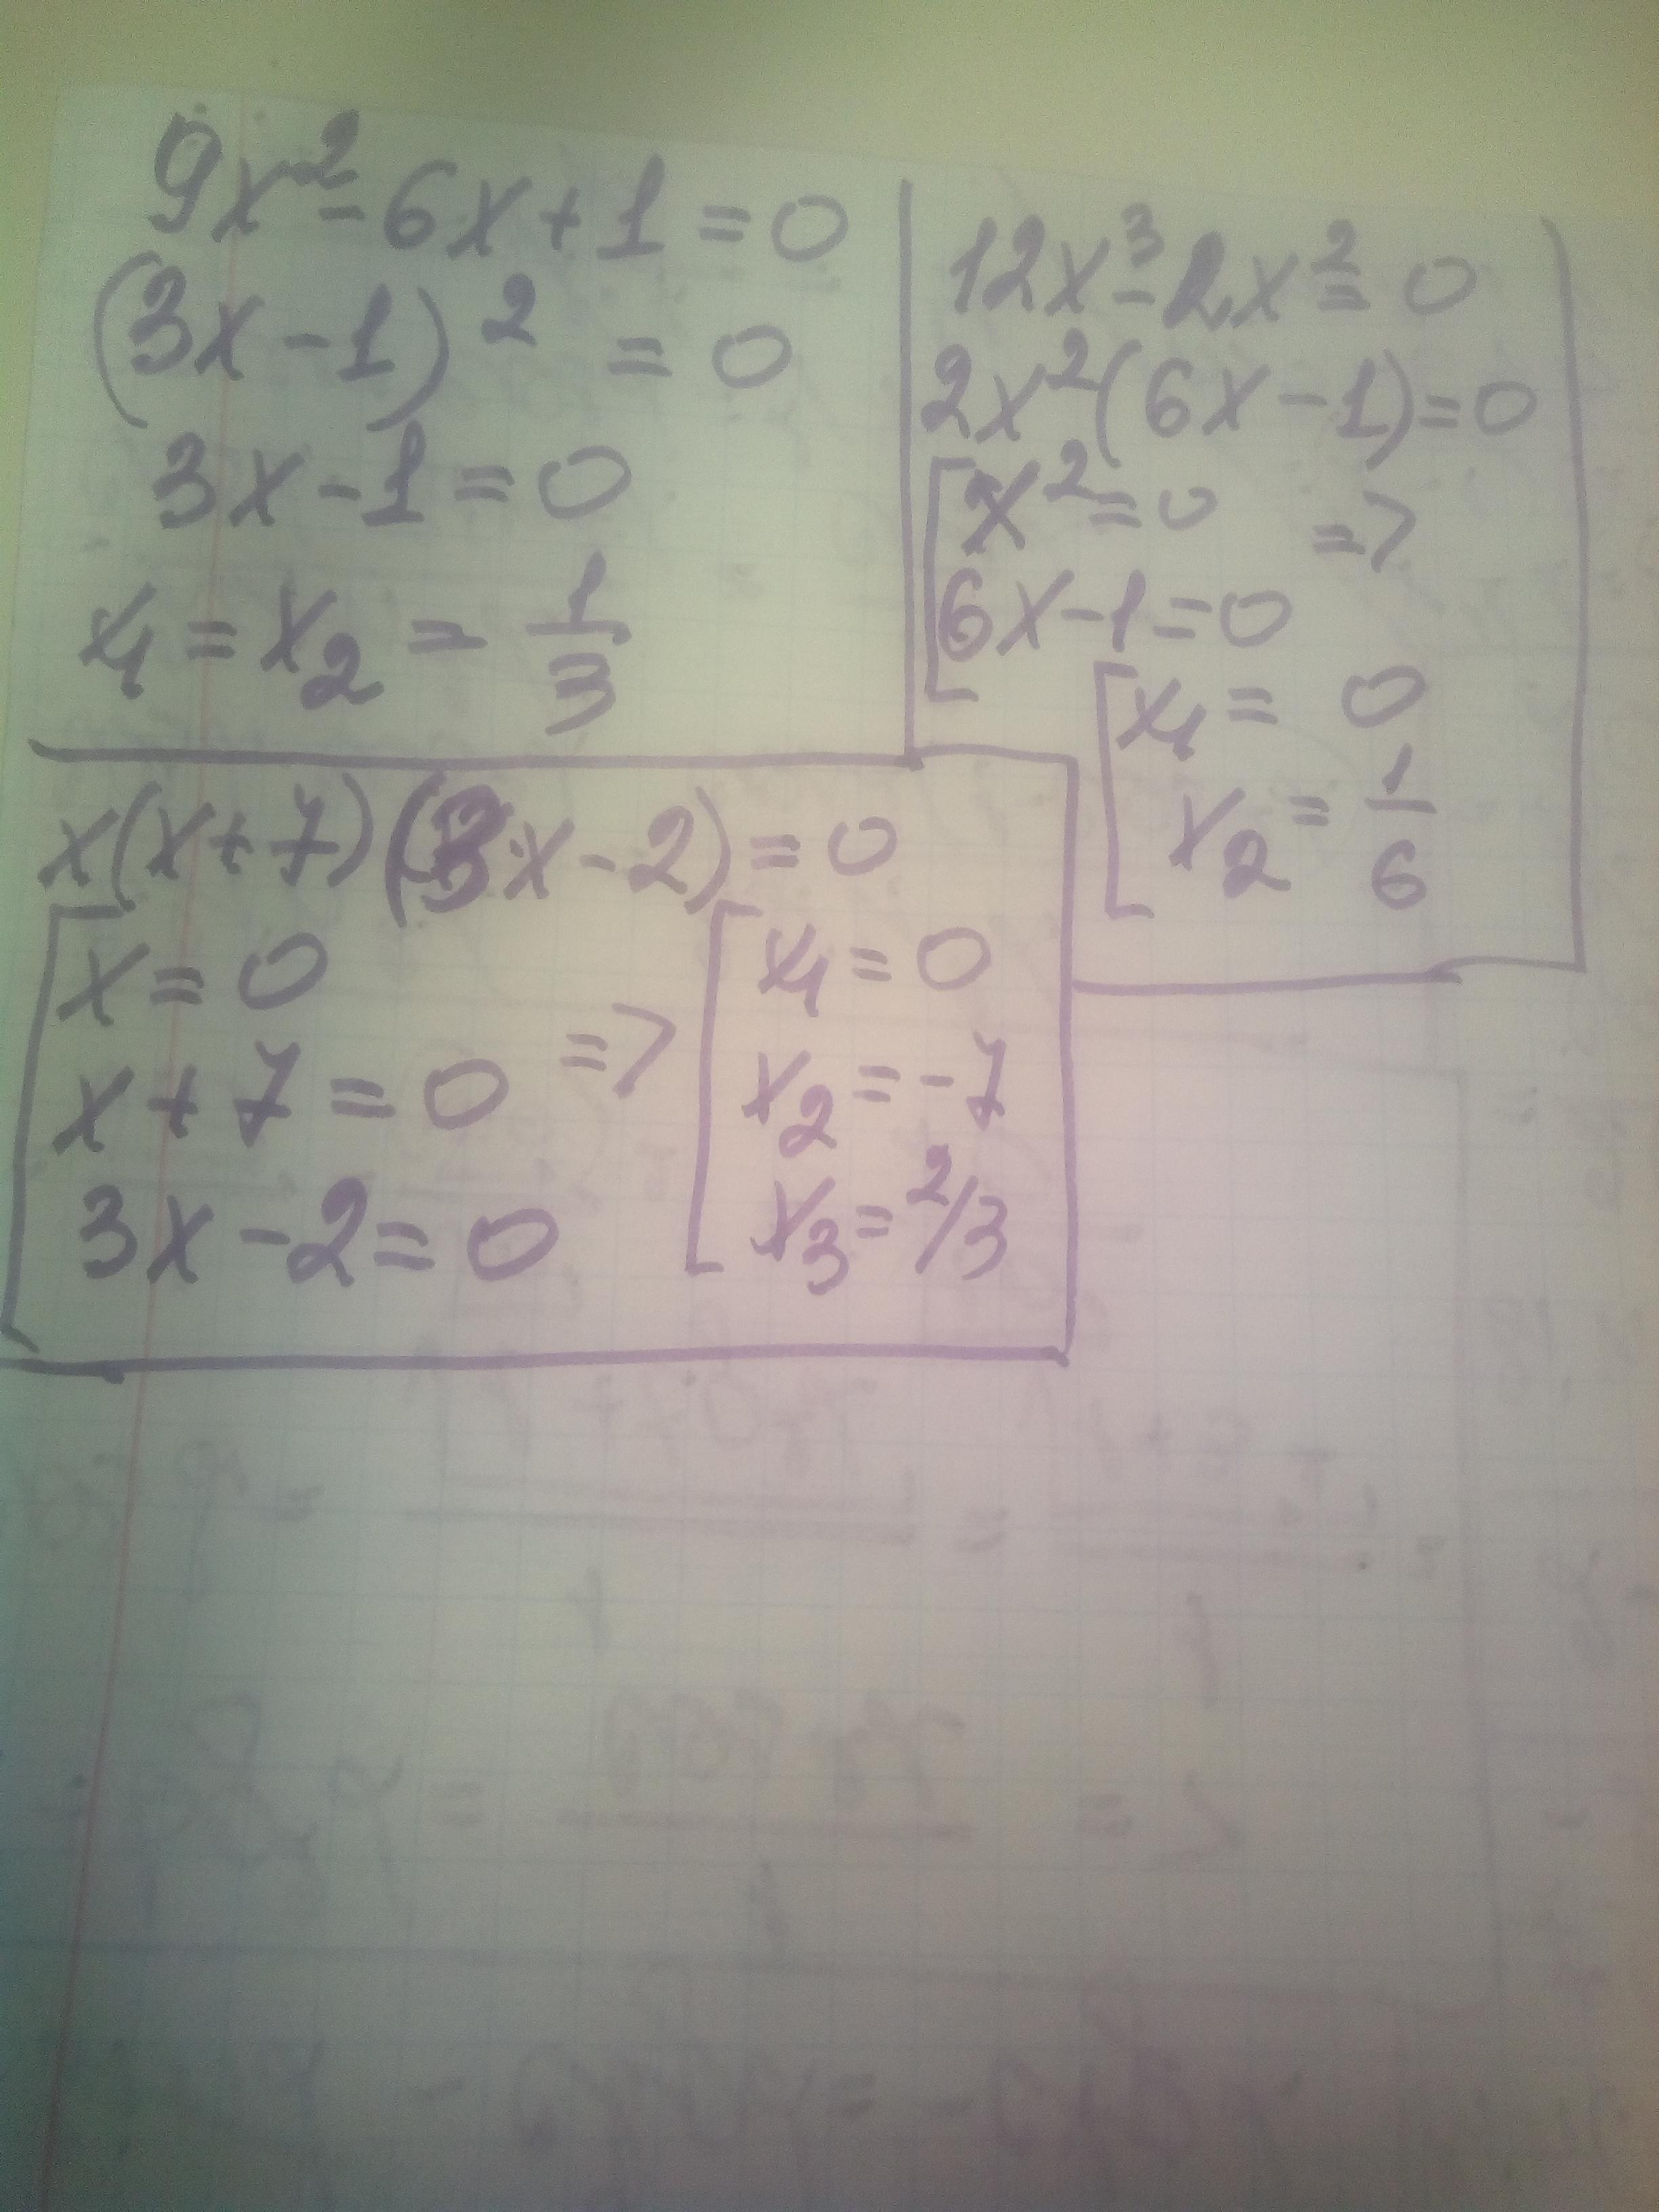 9x² - 6x + 1 = 0
(3x - 1)² = 0
3x - 1 = 0
x₁ = x₂ = 1/3
12x³ - 2x² = 0
2x²(6x - 1) = 0
[x² = 0 =>
6x - 1 = 0
[x₁ = 0
x₂ = 1/6
x(x + 7)(3x - 2) = 0
[x = 0
x + 7 = 0 =>
3x - 2 = 0
[x₁ = 0
x₂ = -7
x₃ = 2/3